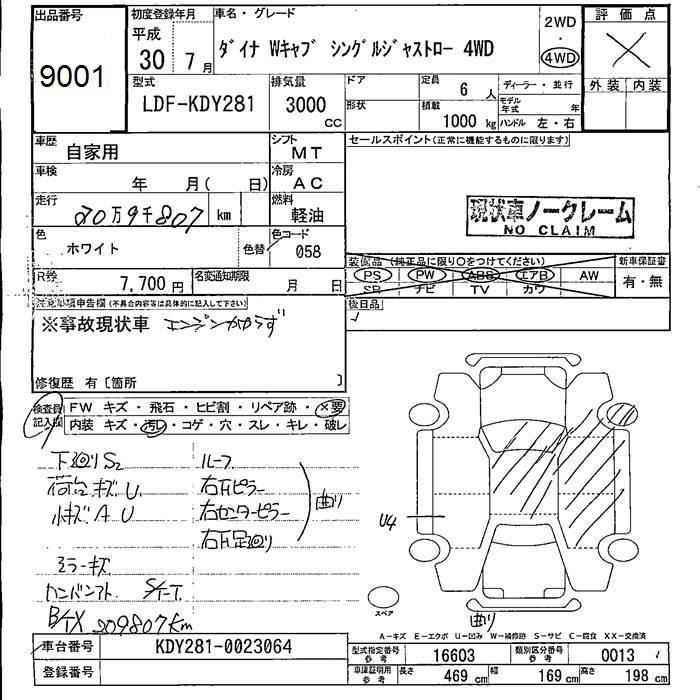 出品番号
9001
初度登録年月
平成
30年7月
車名・グレード
ダイナ Wキャブ シングルジャストロー 4WD
2WD
・
4WD
評価点
外装 内装
型式
LDF-KDY281
排気量
3000
CC
ドア
形状
定員
6人
積載
1000 kg
ディーラー・並行
モデル年式 年
ハンドル 左・右
車歴
自家用
シフト
MT
車検
年 月( 日)
冷房
AC
走行
20万9千807 km
燃料
軽油
色
ホワイト
色替
色コード
058
R券
7,700円
名変通知期限
月 日
セールスポイント(正常に機能するものに限ります)
現状車ノークレーム
NO CLAIM
装備品(純正品に限り○をつけてください)
PS PW ABS エアB AW
SR ナビ TV カワ
新車保証書
有・無
後日品
注意事項申告欄(不具合内容等は具体的に記入して下さい)
※事故現状車 エンジンかからず
修復歴 有〔箇所 〕
検査員記入欄
FW キズ・飛石・ヒビ割・リペア跡・×要
内装 キズ・汚レ・コゲ・穴・スレ・キレ・破レ
下廻りS2
荷台キズU
小キズAU
ミラーキズ
B/TX 209807km
ルーフ
右Fピラー
右センターピラー
右F足廻り
曲り
U4
スペア
曲り
A-キズ E-エクボ U-凹み W-補修跡 S-サビ C-腐食 XX-交換済
車台番号
KDY281-0023064
登録番号
型式指定番号
参考
16603
類別区分番号
参考
0013
車庫証明用
参考
長さ 469 cm
幅 169 cm
高さ 198 cm